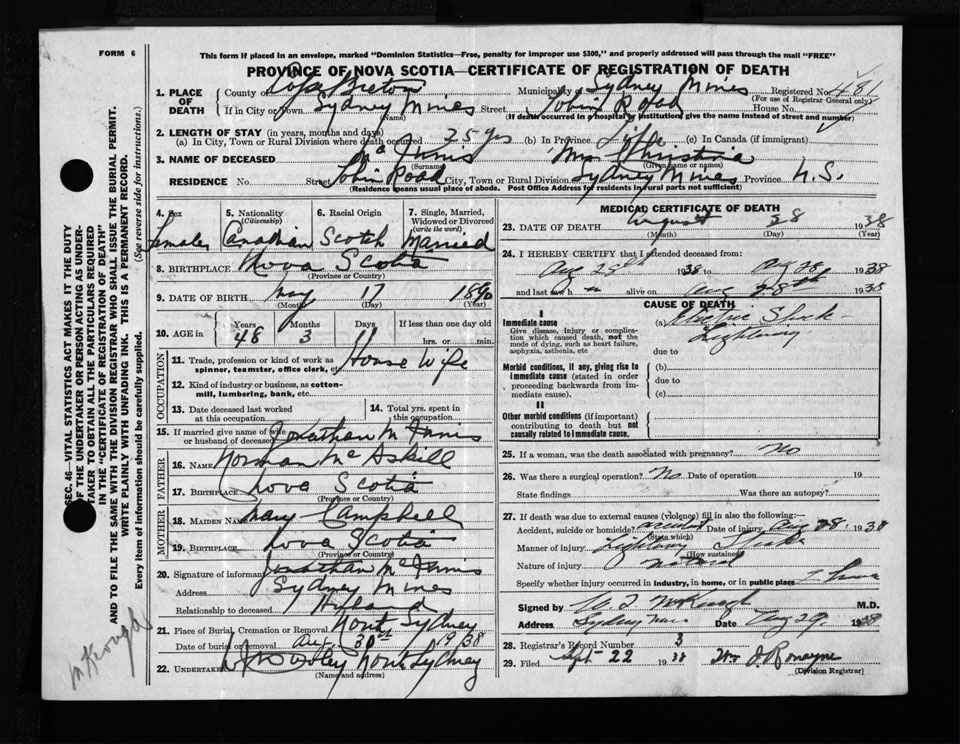 FORM 6
This form if placed in an envelope, marked "Dominion Statistics—Free, penalty for improper use $300," and properly addressed will pass through the mail "FREE"
PROVINCE OF NOVA SCOTIA—CERTIFICATE OF REGISTRATION OF DEATH
1. PLACE OF DEATH County of Cape Breton Municipality of Sydney Mines Registered No. 48
(For use of Registrar General only)
If in City or Town Sydney Mines Street Tobin Road House No.
(Name) (If death occurred in a hospital or institution, give the name instead of street and number)
2. LENGTH OF STAY (in years, months and days)
(a) In City, Town or Rural Division where death occurred 25 yrs (b) In Province Life (c) In Canada (if immigrant)
3. NAME OF DECEASED Mc Innis Mrs Christina
(Surname) (Given name or names)
RESIDENCE No. Street Tobin Road City, Town or Rural Division Sydney Mines Province N.S.
(Residence means usual place of abode. Post Office Address for residents in rural parts not sufficient)
4. Sex Female
5. Nationality (Citizenship) Canadian
6. Racial Origin Scotch
7. Single, Married, Widowed or Divorced (write the word) Married
8. BIRTHPLACE Nova Scotia
(Province or Country)
9. DATE OF BIRTH May 17 1890
(Month) (Day) (Year)
10. AGE in Years 48 Months 3 Days 11 If less than one day old hrs. or min.
OCCUPATION
11. Trade, profession or kind of work as spinner, teamster, office clerk, etc. House Wife
12. Kind of industry or business, as cotton-mill, lumbering, bank, etc.
13. Date deceased last worked at this occupation
14. Total yrs. spent in this occupation
15. If married give name of wife or husband of deceased Jonathan McInnis
FATHER
16. NAME Norman McAskill
17. BIRTHPLACE Nova Scotia
(Province or Country)
MOTHER
18. MAIDEN NAME Mary Campbell
19. BIRTHPLACE Nova Scotia
(Province or Country)
20. Signature of informant Jonathan McInnis
Address Sydney Mines
Relationship to deceased Husband
21. Place of Burial, Cremation or Removal North Sydney
Date of burial or removal Aug 30st 1938
22. UNDERTAKER North Sydney
(Name and address)
MEDICAL CERTIFICATE OF DEATH
23. DATE OF DEATH August 28 1938
(Month) (Day) (Year)
24. I HEREBY CERTIFY that I attended deceased from:
Aug 28th 1938 to Aug 28 1938
and last saw h alive on Aug 28th 1938
CAUSE OF DEATH
I
Immediate cause (a) Electric Shock - Lightning
Give disease, injury or complication which caused death, not the mode of dying, such as heart failure, asphyxia, asthenia, etc.
due to
Morbid conditions, if any, giving rise to immediate cause (stated in order proceeding backwards from immediate cause). (b)
due to
(c)
II
Other morbid conditions (if important) contributing to death but not causally related to immediate cause.
25. If a woman, was the death associated with pregnancy? No
26. Was there a surgical operation? No Date of operation 19
State findings Was there an autopsy?
27. If death was due to external causes (violence) fill in also the following:—
Accident, suicide or homicide? accident Date of injury Aug 28 1938
(State which)
Manner of injury Lightning Stroke
(How sustained)
Nature of injury
Specify whether injury occurred in industry, in home, or in public place
Signed by M.D.
Address Sydney Mines Date Aug 29 1938
28. Registrar's Record Number 3
29. Filed Sept 22 1938 Wm J. Ronayne
(Division Registrar)
SEC. 46—VITAL STATISTICS ACT MAKES IT THE DUTY
OF THE UNDERTAKER OR PERSON ACTING AS UNDER-
TAKER TO OBTAIN ALL THE PARTICULARS REQUIRED
IN THE "CERTIFICATE OF REGISTRATION OF DEATH"
AND TO FILE THE SAME WITH THE DIVISION REGISTRAR WHO SHALL ISSUE THE BURIAL PERMIT.
WRITE PLAINLY WITH UNFADING INK. THIS IS A PERMANENT RECORD.
Every item of information should be carefully supplied. (See reverse side for instructions.)
McKeough